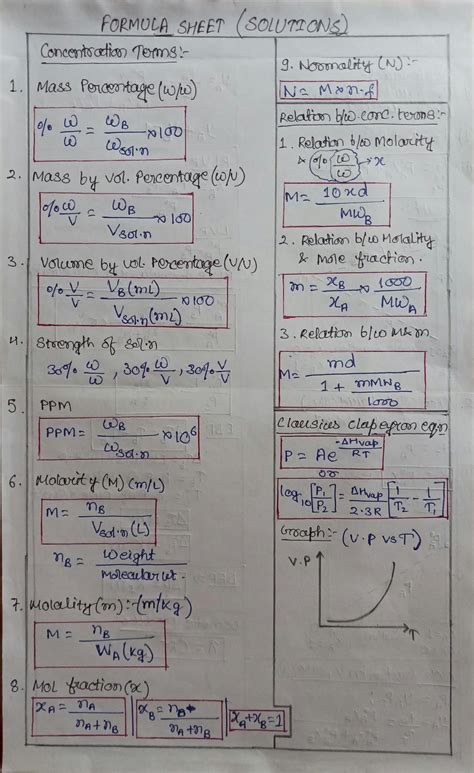 FORMULA SHEET (SOLUTIONS)
Concentration Terms:-
1. Mass Percentage (w/w)
% w/w = w_B / w_sol.n × 100
2. Mass by vol. Percentage (w/v)
% w/v = w_B / V_sol.n × 100
3. Volume by vol. Percentage (v/v)
% v/v = V_B (mL) / V_sol.n (mL) × 100
4. Strength of sol.n
30% w/w , 30% w/v , 30% v/v
5. PPM
PPM = w_B / w_sol.n × 10^6
6. Molarity (M) (m/L)
M = n_B / V_sol.n (L)
n_B = Weight / Molecular wt.
7. Molality (m) :- (m/kg)
M = n_B / W_A (kg)
8. Mol fraction (x)
x_A = n_A / n_A + n_B
x_B = n_B / n_A + n_B
x_A + x_B = 1
9. Normality (N) :-
N = M × n-f
Relation b/w conc. terms:-
1. Relation b/w Molarity
& (% w/w) → x
M = 10xd / MW_B
2. Relation b/w Molality
& Mole fraction.
m = x_B / x_A × 1000 / MW_A
3. Relation b/w M & m
M = md / 1 + mMW_B / 1000
Clausius clapeyron eqn
P = Ae^-ΔHvap / RT
or
log_10 [P_1 / P_2] = ΔHvap / 2.3R [1 / T_2 - 1 / T_1]
Graph:- (V.P vs T)
V.P
T